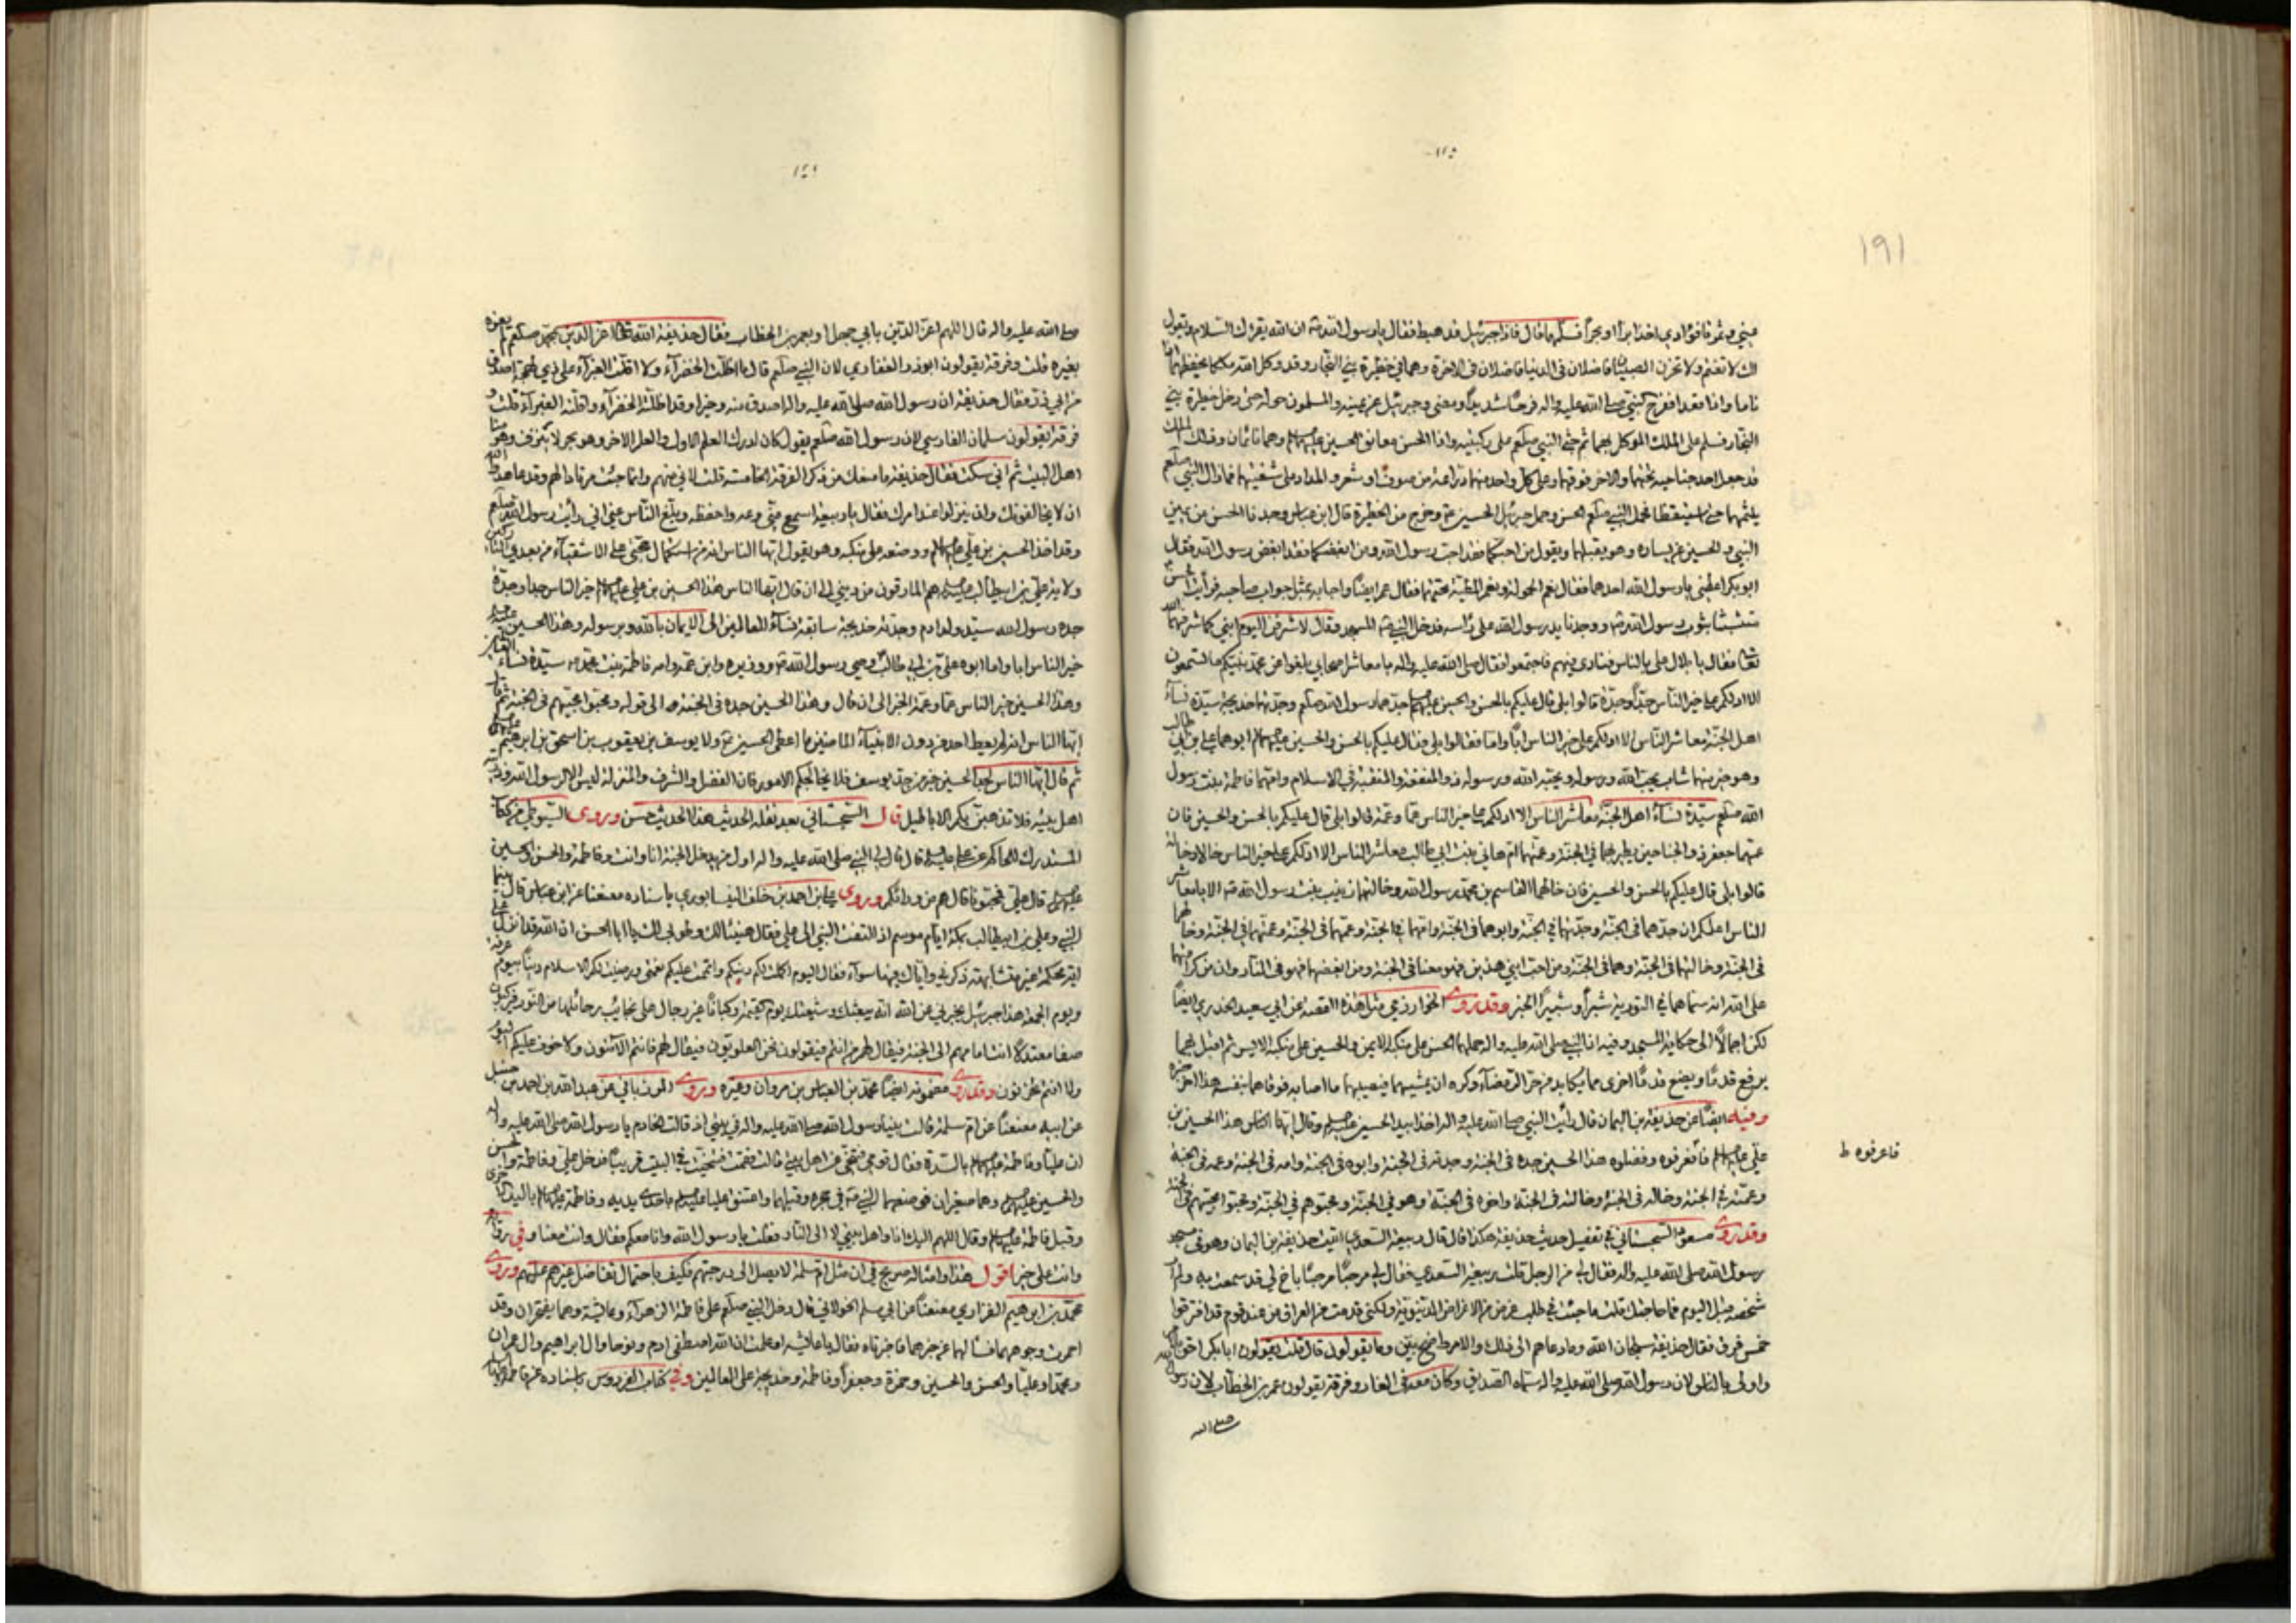 ١٩١
عيني وثمرتا فؤادي اخذا برا او بحرا فسلمهما قال فاذا جبرئيل قد هبط فقال يا رسول الله ان الله يقرئك السلام ويقول
لك لا تغتم ولا تحزن الصبيان فاضلان في الدنيا فاضلان في الاخرة وهما في حظيرة بني النجار وقد وكل الله ملكا يحفظهما
ناما وانا فقام فرح النبي صلى الله عليه واله فرحا شديدا ومضى وجبرئيل عن يمينه والمسلمون حوله حتى دخل حظيرة بني
النجار فسلم على الملك الموكل بهما ثم جثى النبي صلعم على ركبتيه واذا الحسن معانق الحسين وهما نائمان وذلك الملك
قد جعل احد جناحيه تحتهما والاخر فوقهما وعلى كل واحد منهما دراعة من صوف او شعر والمداد على شفتيهما فما زال النبي صلعم
يلثمهما حتى استيقظا فحمل النبي صلعم الحسن وحمل جبرئيل الحسين وخرج من الحظيرة قال ابن عباس وجدنا الحسن عن يمين
النبي والحسين عن يساره وهو يقبلهما ويقول من احبكما فقد احب رسول الله ومن ابغضكما فقد ابغض رسول الله فقال
ابو بكر اعطني يا رسول الله احدهما فقال نعم الحمولة ونعم المطية تحتهما فقال عمر ايضا واجابه بمثل جواب صاحبه فرأيت الحسن
متشبثا بثوب رسول الله ووجدنا يد رسول الله على راسه فدخل النبي المسجد وقال لاشرفن اليوم ابني كما شرفهما الله
تعالى فقال يا بلال علي بالناس فنادى فيهم فاجتمعوا فقال صلى الله عليه واله يا معاشر اصحابي بلغوا عن محمد نبيكم ما تسمعون
الا ادلكم على خير الناس جدا وجدة قالوا بلى قال عليكم بالحسن والحسين جدهما رسول الله صلعم وجدتهما خديجة سيدة نساء
اهل الجنة معاشر الناس الا ادلكم على خير الناس ابا واما فقالوا بلى فقال عليكم بالحسن والحسين ابوهما علي بن ابي طالب
وهو خير منهما شاب يحب الله ورسوله ويحبه الله ورسوله ذو المنفعة والمنقبة في الاسلام وامهما فاطمة بنت رسول
الله صلعم سيدة نساء اهل الجنة معاشر الناس الا ادلكم على خير الناس عما وعمة قالوا بلى قال عليكم بالحسن والحسين فان
عمهما جعفر ذو الجناحين يطير بهما في الجنة وعمتهما ام هاني بنت ابي طالب معاشر الناس الا ادلكم على خير الناس خالا وخالة
قالوا بلى قال عليكم بالحسن والحسين فان خالهما القاسم بن محمد رسول الله وخالتهما زينب بنت رسول الله الا يا معاشر
الناس اعلمكم ان جدهما في الجنة وجدتهما في الجنة وابوهما في الجنة وامهما في الجنة وعمهما في الجنة وعمتهما في الجنة وخالهما
في الجنة وخالتهما في الجنة وهما في الجنة ومن احب ابني هذين فهو معنا في الجنة ومن ابغضهما فهو في النار وان من كرامتهما
على الله ان سماهما في التورية شبرا وشبيرا الخبر وقد روى الخوارزمي مثل هذه القصة عن ابي سعيد الخدري ايضا
لكن اجمالا الى حكاية المسجد وفيه ان النبي صلى الله عليه واله حملهما الحسن على منكبه الايمن والحسين على منكبه الايسر ثم اقبل بهما
يرفع قدما ويضع قدما اخرى مما يكابد من حر الرمضاء وكره ان يمشيهما فيصيبهما ما اصابه فوقاهما بنفسه هذا اخر
وفيه ايضا عن حذيفة بن اليمان قال رأيت النبي صلى الله عليه واله اخذا بيد الحسين وقال ايها الناس هذا الحسين بن
علي فاعرفوه وفضلوه هذا الحسين جده في الجنة وجدته في الجنة وابوه في الجنة وامه في الجنة وعمه في الجنة
فاعرفوه ط
وعمته في الجنة وخاله في الجنة وخالته في الجنة واخوه في الجنة وهو في الجنة ومحبوهم في الجنة ومحبوا محبيهم في الجنة
وقد روى مسعود السجستاني في تفصيل حديث حذيفة هكذا قال قال ربيعة السعدي اتيت حذيفة بن اليمان وهو في مسجد
رسول الله صلى الله عليه واله فقال لي من الرجل قلت ربيعة السعدي فقال لي مرحبا مرحبا باخ لي قد سمعت به ولم ار
شخصه قبل اليوم فما حاجتك قلت ما جئت في طلب غرض من الاغراض الدنيوية ولكني قدمت من العراق من عند قوم قد افترقوا
خمس فرق فقال حذيفة سبحان الله وما دعاهم الى ذلك والامر واضح بين وما يقولون قال قلت يقولون ابا بكر احق
واولى بالناس لان رسول الله صلى الله عليه واله سماه الصديق وكان معه في الغار وفرقة يقولون عمر بن الخطاب لان رسول الله
صلى الله
صلى الله عليه واله قال اللهم اعز الدين بابي جهل او بعمر بن الخطاب فقال حذيفة الله تعالى اعز الدين بمحمد صلعم ولم يعزه
بغيره قلت وفرقة يقولون ابو ذر الغفاري لان النبي صلعم قال ما اظلت الخضراء ولا اقلت الغبراء على ذي لهجة اصدق
من ابي ذر فقال حذيفة ان رسول الله صلى الله عليه واله اصدق منه وخير وقد اظلته الخضراء واقلته الغبراء قلت و
فرقة يقولون سلمان الفارسي لان رسول الله صلعم يقول كان ادرك العلم الاول والعلم الاخر وهو بحر لا ينزف وهو منا
اهل البيت ثم اني سكت فقال حذيفة ما منعك من ذكر الفرقة الخامسة قلت لاني منهم وانما جئت مرتادا لهم وقد عاهدوا الله
ان لا يخالفوك وان ينزلوا عند امرك فقال يا ربيعة اسمع مني وعه واحفظه وبلغ الناس عني اني رأيت رسول الله صلعم
وقد اخذ الحسين بن علي ووضعه على منكبه وهو يقول ايها الناس انه من استكمال حجتي على الاشقياء من بعدي التاركين
ولاية علي بن ابي طالب هم المارقون من ديني الى ان قال ايها الناس هذا الحسين بن علي خير الناس جدا وجدة
جده رسول الله سيد ولد ادم وجدته خديجة سابقة نساء العالمين الى الايمان بالله وبرسوله وهذا الحسين
خير الناس ابا واما ابوه علي بن ابي طالب وصي رسول الله ووزيره وابن عمه وامه فاطمة بنت محمد سيدة نساء
وهذا الحسين خير الناس عما وعمة الخبر الى ان قال وهذا الحسين جده في الجنة الى قوله ومحبوا محبيهم في الجنة ثم قال
ايها الناس انه لم يعط احد من دون الانبياء الماضين ما اعطي الحسين ولا يوسف بن يعقوب بن اسحق بن ابرهيم
ثم قال ايها الناس لجد الحسين خير من جد يوسف فلا يخالجكم الامور فان الفضل والشرف والمنزلة ليس الا لرسول الله وذريته
اهل بيته فلا تذهبن بكم الاباطيل قال السجستاني بعد نقله الحديث هذا الحديث حسن وروى السيوطي من كتاب
المستدرك للحاكم عن علي قال قال لي النبي صلى الله عليه واله اول من يدخل الجنة انا وانت وفاطمة والحسن والحسين
قال علي فمحبونا قال هم من ورائكم وروى علي بن احمد بن خلف النيسابوري باسناده معنعنا عن ابن عباس قال بينما
النبي وعلي بن ابي طالب بمكة ايام موسم اذ التفت النبي الى علي فقال هنيئا لك وطوبى لك يا ابا الحسن ان الله قد انزل علي
اية محكمة غير متشابهة ذكري واياك فيها سواء فقال اليوم اكملت لكم دينكم واتممت عليكم نعمتي ورضيت لكم الاسلام دينا بيوم عرفة
ويوم الجمعة هذا جبرئيل يخبرني عن الله انه يبعثك وشيعتك يوم القيمة ركبانا غير رجال على نجائب رحائلها من النور
انتم فيقولون نحن العلويون فيقال لهم فانتم الآمنون ولا خوف عليكم اليوم
ولا انتم تحزنون وقد روى مضمونه ايضا محمد بن العباس بن مروان وغيره وروى عن عبد الله بن احمد بن حنبل
عن ابيه معنعنا عن ام سلمة قالت بينا رسول الله صلى الله عليه واله في بيتي اذ قالت الخادم يا رسول الله صلى الله عليه واله
ان عليا وفاطمة بالسدة فقال قومي فتنحي عن اهل بيتي قالت فقمت فتنحيت في البيت قريبا فدخل علي وفاطمة والحسن
والحسين وهما صغيران فوضعهما النبي في حجره وقبلهما واعتنق عليا باحدى يديه وفاطمة باليد الاخرى
وقبل فاطمة وقال اللهم اليك انا واهل بيتي لا الى النار فقلت يا رسول الله وانا معكم فقال وانت معنا وفي رواية
وانت على خير اقول هذا وامثاله صريح في ان مثل ام سلمة لا يصل الى درجتهم فكيف باحتمال تفاضل غيرهم عليهم وروى
محمد بن ابرهيم الفزاري معنعنا عن ابي مسلم الخولاني قال دخل النبي صلعم على فاطمة الزهراء وعائشة وهما يفتخران وقد
احمرت وجوههما فسألهما عن خبرهما فاخبرتاه فقال يا عائشة اما علمت ان الله اصطفى ادم ونوحا وال ابراهيم وال عمران
ومحمدا وعليا والحسن والحسين وحمزة وجعفرا وفاطمة وخديجة على العالمين وفي كتاب الفردوس باسناده عن فاطمة